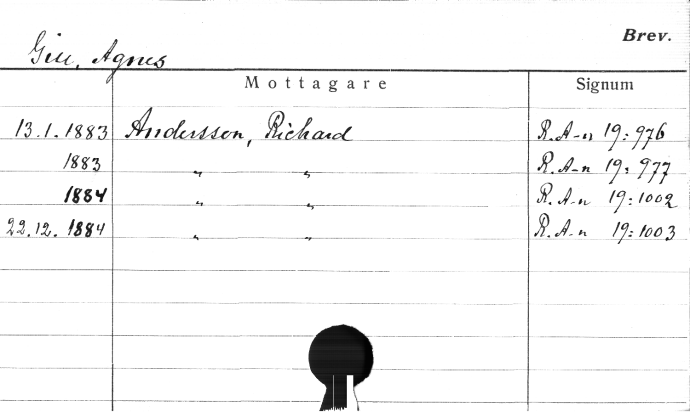 Brev.
Gill, Agnes
Mottagare Signum
13.1.1883 Andersson, Richard R. A-n 19:976
1883 " " R. A-n 19:977
1884 " " R. A-n 19:1002
22.12.1884 " " R. A-n 19:1003